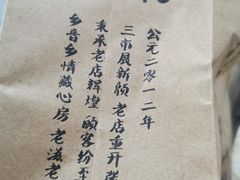 公元二零一二年
三市展新颜 老店重开
秉承老店辉煌 顾客纷至
乡音乡情藏心房 老滋老